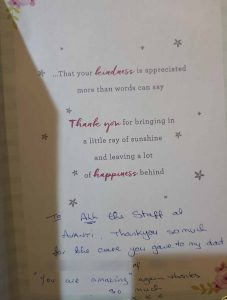 ...That your kindness is appreciated
more than words can say
Thank you for bringing in
a little ray of sunshine
and leaving a lot
of happiness behind
To All the Staff at
Thankyou so much
for the care you gave to my dad
"You are amazing" again thanks
so much